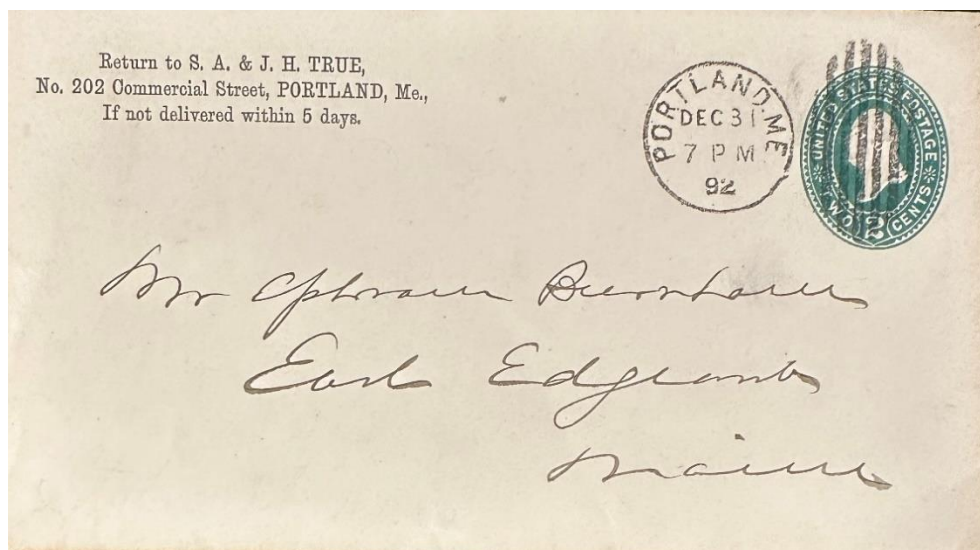 Return to S. A. & J. H. TRUE,
No. 202 Commercial Street, PORTLAND, Me.,
If not delivered within 5 days.
PORTLAND, ME
DEC 31
7 PM
92
UNITED STATES POSTAGE
TWO 2 CENTS
Mr Ephraim Burnham
East Edgcomb
Maine